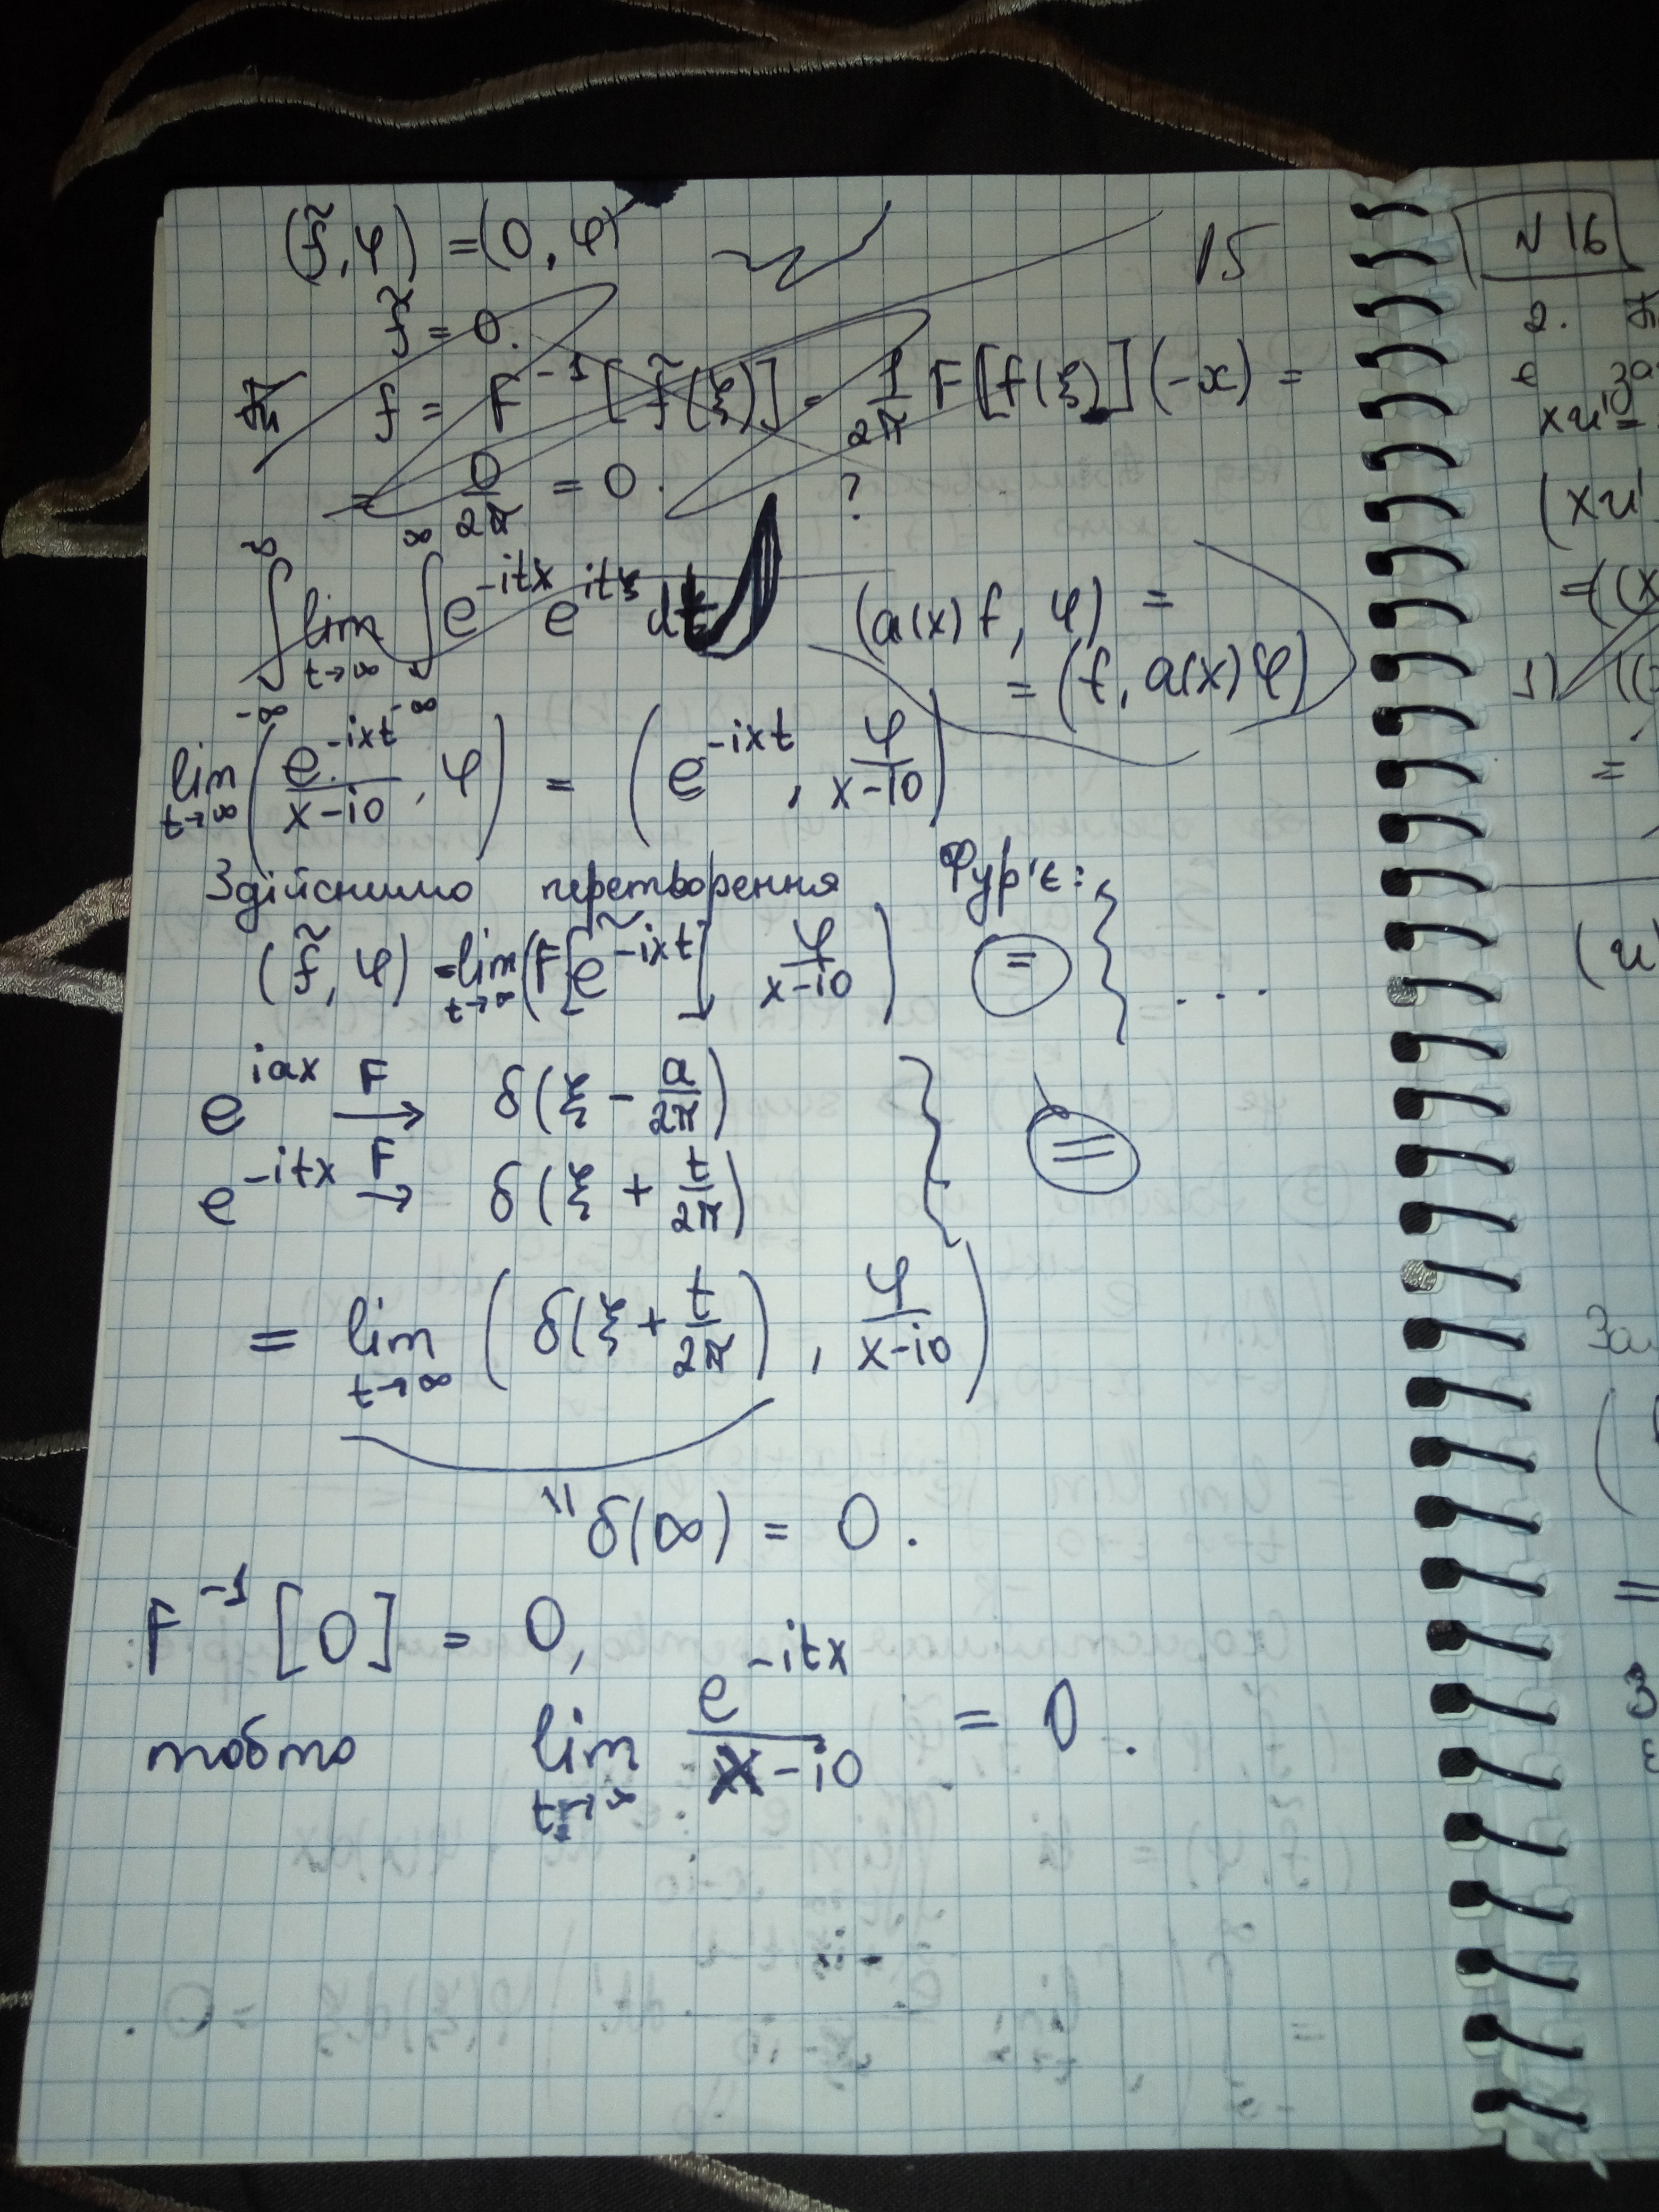 (f̃, φ) = (0, φ)
15
f̃ = 0.
f = F⁻¹[f̃(ξ)] = 1/2π F[f(ξ)](-x) =
= 0/2π = 0. ?
∫_{-∞}^{∞} lim_{t→∞} ∫_{-∞}^{∞} e^{-itx} e^{itξ} dt
(a(x)f, φ) =
= (f, a(x)φ)
lim_{t→∞} (e^{-ixt}/(x-i0), φ) = (e^{-ixt}, φ/(x-i0))
Здійснимо перетворення Фур'є:
(f̃, φ) = lim_{t→∞} (F[e^{-ixt}] φ/(x-i0)) = ...
e^{iax} F→ δ(ξ - a/2π)
e^{-itx} F→ δ(ξ + t/2π) =
= lim_{t→∞} (δ(ξ + t/2π), φ/(x-i0))
" δ(∞) = 0.
F⁻¹[0] = 0,
тобто lim_{t→∞} e^{-itx}/(x-i0) = 0.
N 16
2.
xu' =
(xu'
= ((x
1) ((
=
(u
За
(
=